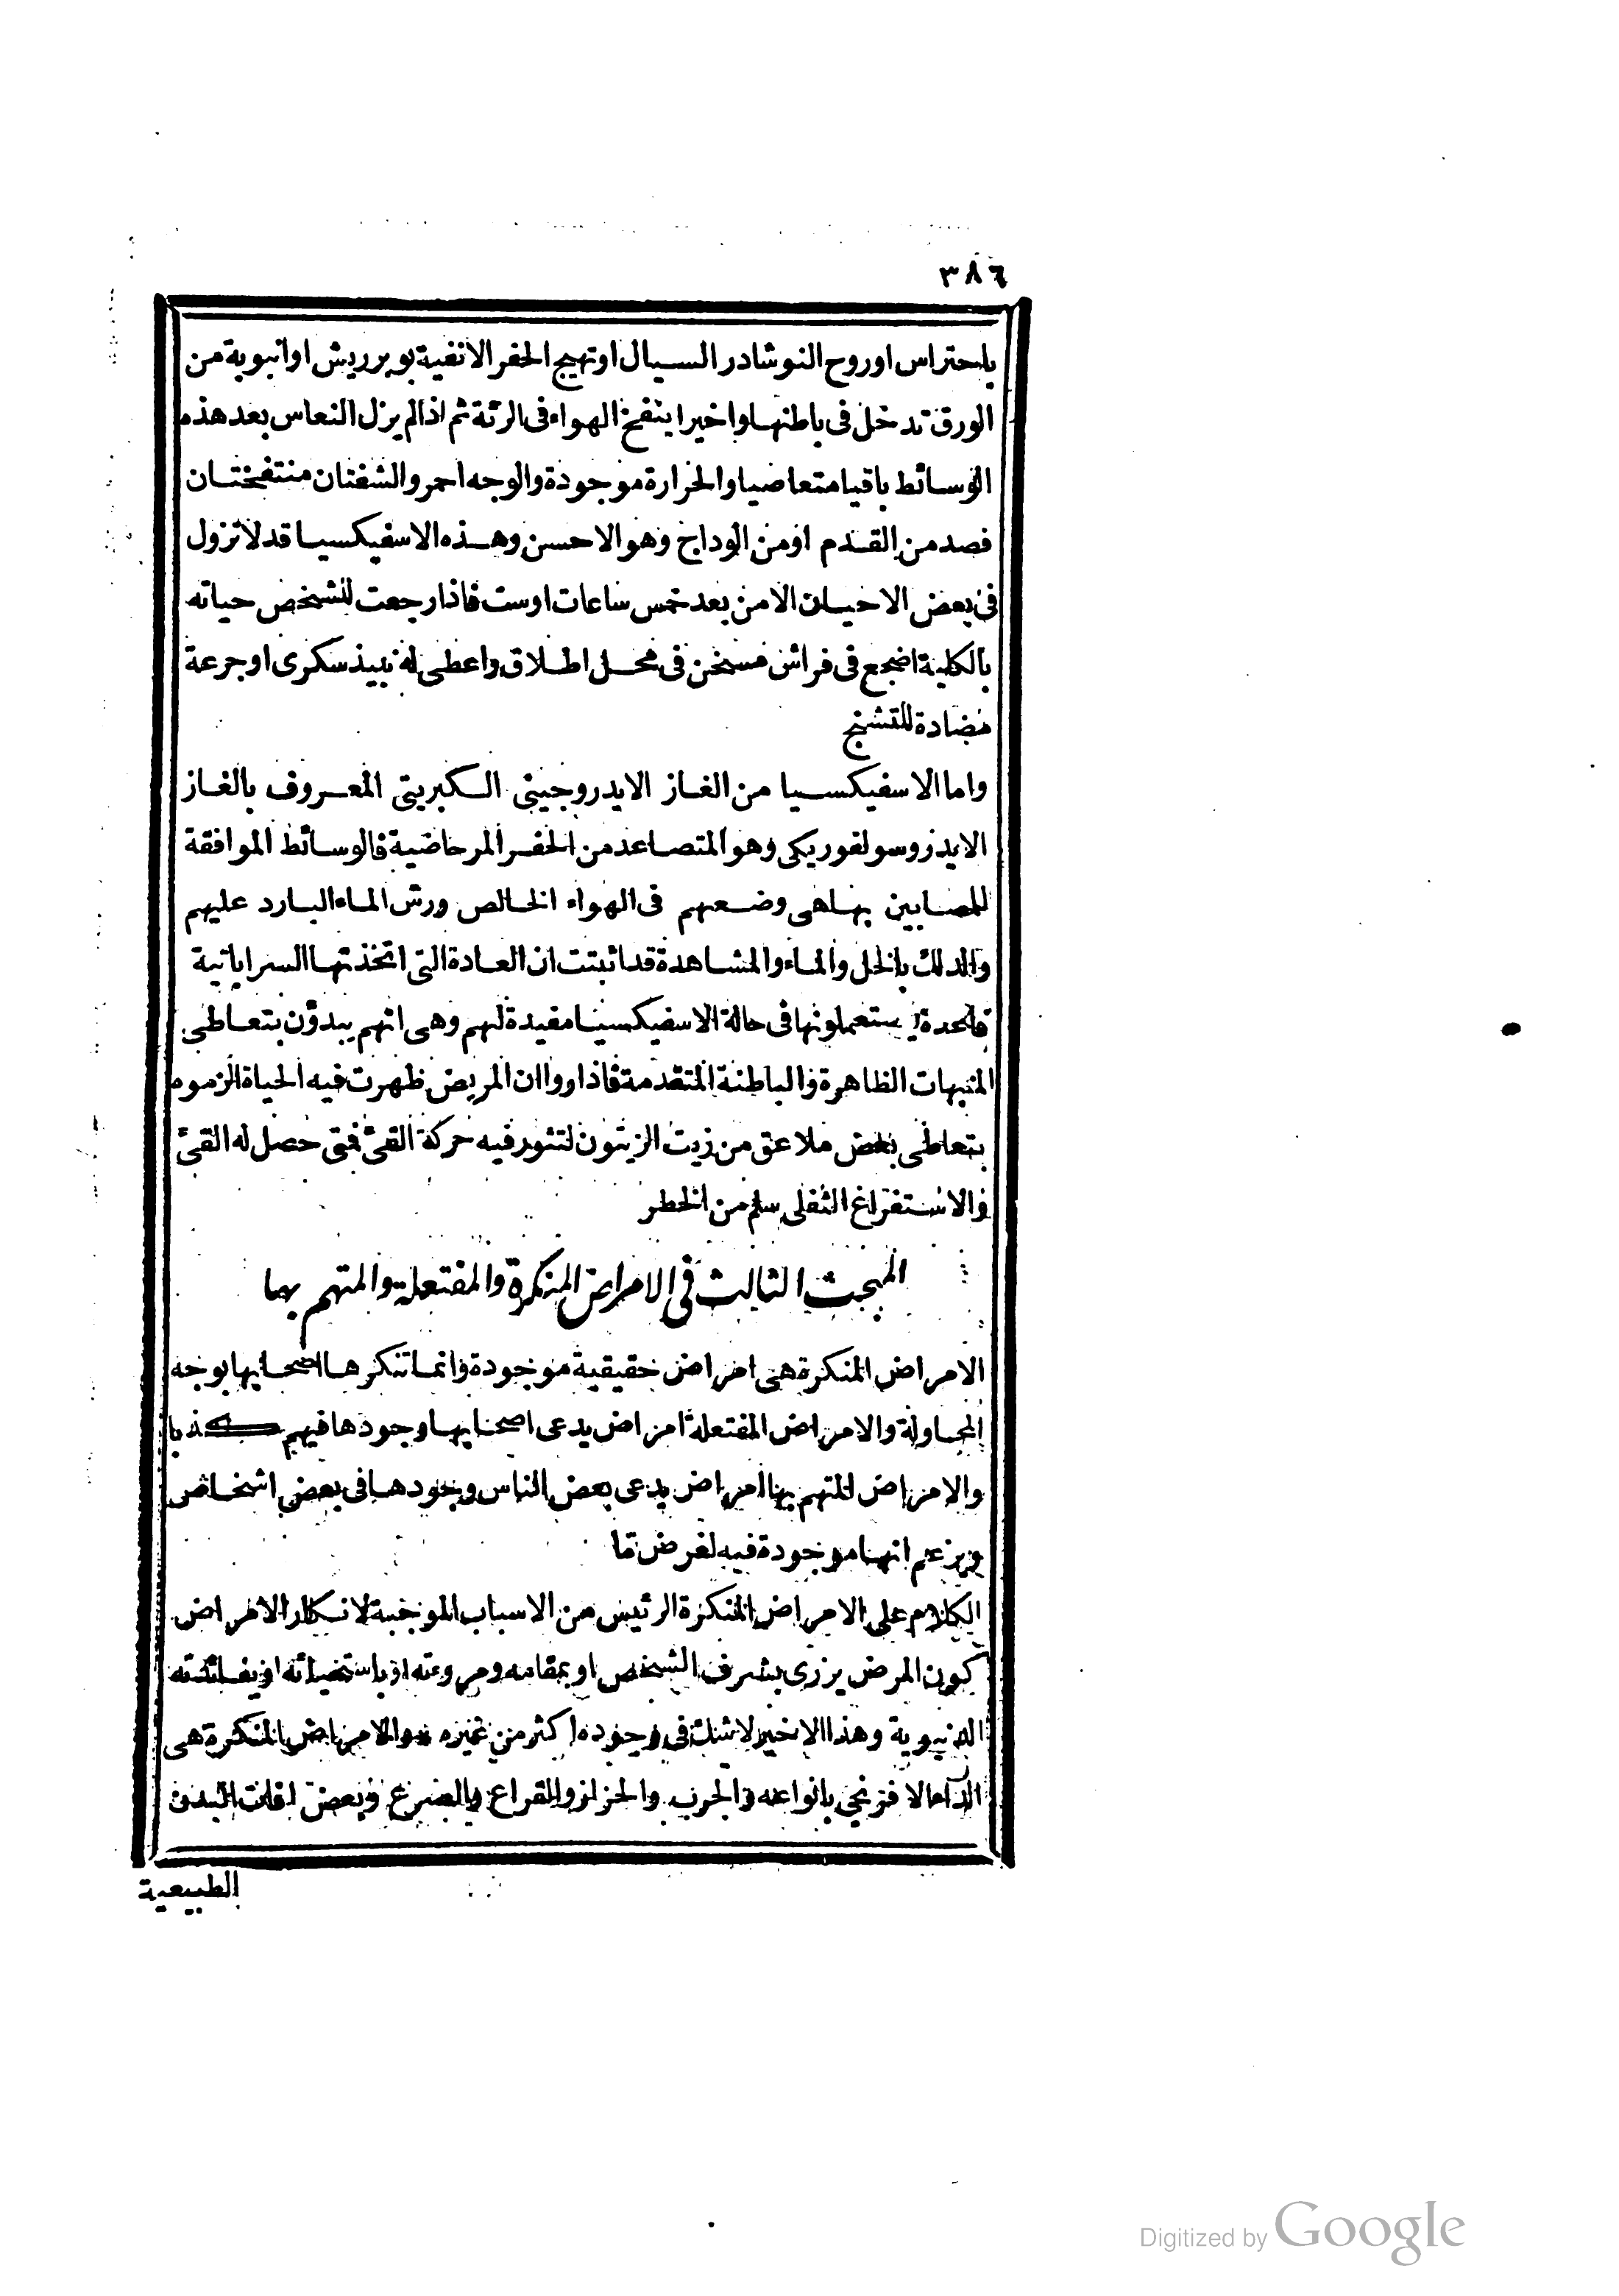 ٣٨٦
باحتراس اوروح النوشادر السيال اوتهيج الحفر الانفية بوبر ريش اوانبوبة من
الورق تدخل فى باطنها واخيرا ينفخ الهواء فى الرئة ثم اذا لم يزل النعاس بعد هذه
الوسائط باقيا متعاصيا والحرارة موجودة والوجه احمر والشفتان منتفختان
فصد من القدم اومن الوداج وهو الاحسن وهذه الاسفيكسيا قد لا تزول
فى بعض الاحيان الا من بعد خمس ساعات اوست فاذا رجعت للشخص حياته
بالكلية اضجع فى فراش مسخن فى محل اطلاق واعطى له نبيذ سكرى اوجرعة
مضادة للتشنج
واما الاسفيكسيا من الغاز الايدروجينى الكبريتى المعروف بالغاز
الايدروسولفوريكى وهو المتصاعد من الحفر المرحاضية فالوسائط الموافقة
للمصابين بها هى وضعهم فى الهواء الخالص ورش الماء البارد عليهم
والدلك بالخل والماء والمشاهدة قد اثبتت ان العادة التى اتخذتها السراباتية
قاعدة يستعملونها فى حالة الاسفيكسيا مفيدة لهم وهى انهم يبدؤن بتعاطى
المنبهات الظاهرة والباطنة المتقدمة فاذا رواان المريض ظهرت فيه الحياة الزموه
بتعاطى بعض ملاعق من زيت الزيتون لتثور فيه حركة القئ فمتى حصل له القئ
والاستفراغ الثفلى سلم من الخطر
المبحث الثالث فى الامراض المنكرة والمفتعلة والمتهم بها
الامراض المنكرة هى امراض حقيقية موجودة وانما تنكرها اصحابها بوجه
المحاولة والامراض المفتعلة امراض يدعى اصحابها وجودها فيهم كذبا
والامراض المتهم بها امراض يدعى بعض الناس وجودها فى بعض اشخاص
ويزعم انها موجودة فيه لغرض ما
الكلام على الامراض المنكرة الرئيس من الاسباب الموجبة لانكار الامراض
كون المرض يزرى بشرف الشخص اوبمقامه ومروءته اوباستحيائه اوبفائدته
الدنيوية وهذا الاخير لاشك فى وجوده اكثر من غيره والامراض المنكرة هى
الداء الافرنجى بانواعه والجرب والحزاز والقراع والصرع وبعض افات البدن
الطبيعية
Digitized by Google